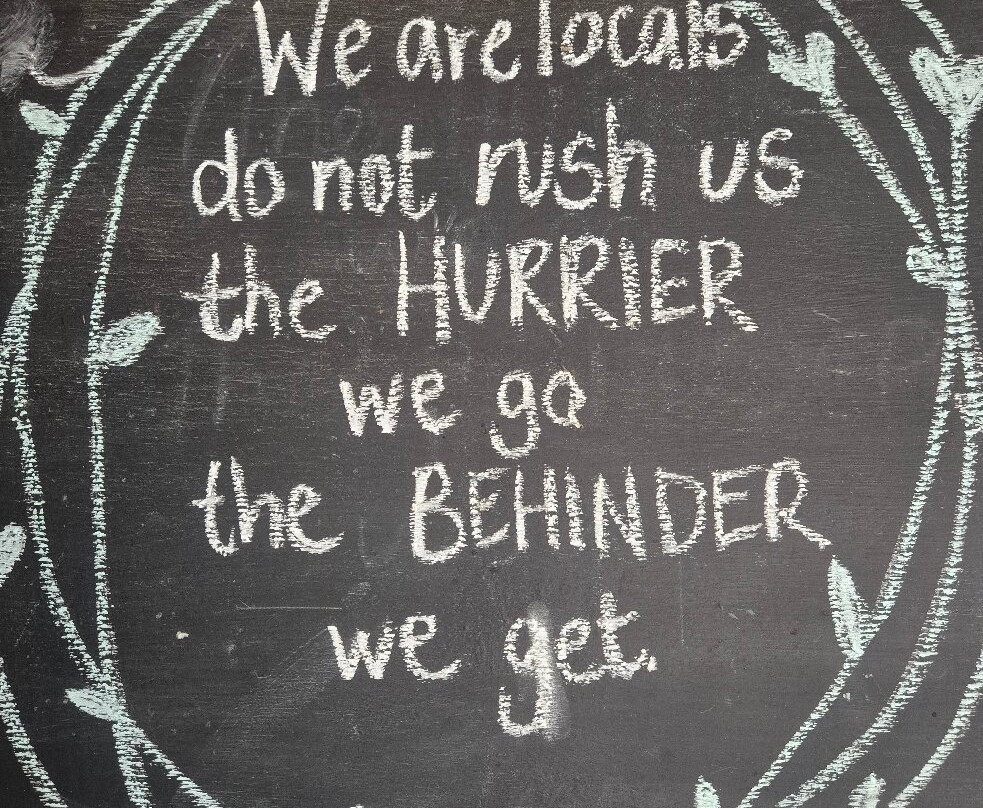 We are locals
do not rush us
the HURRIER
we go
the BEHINDER
we get.